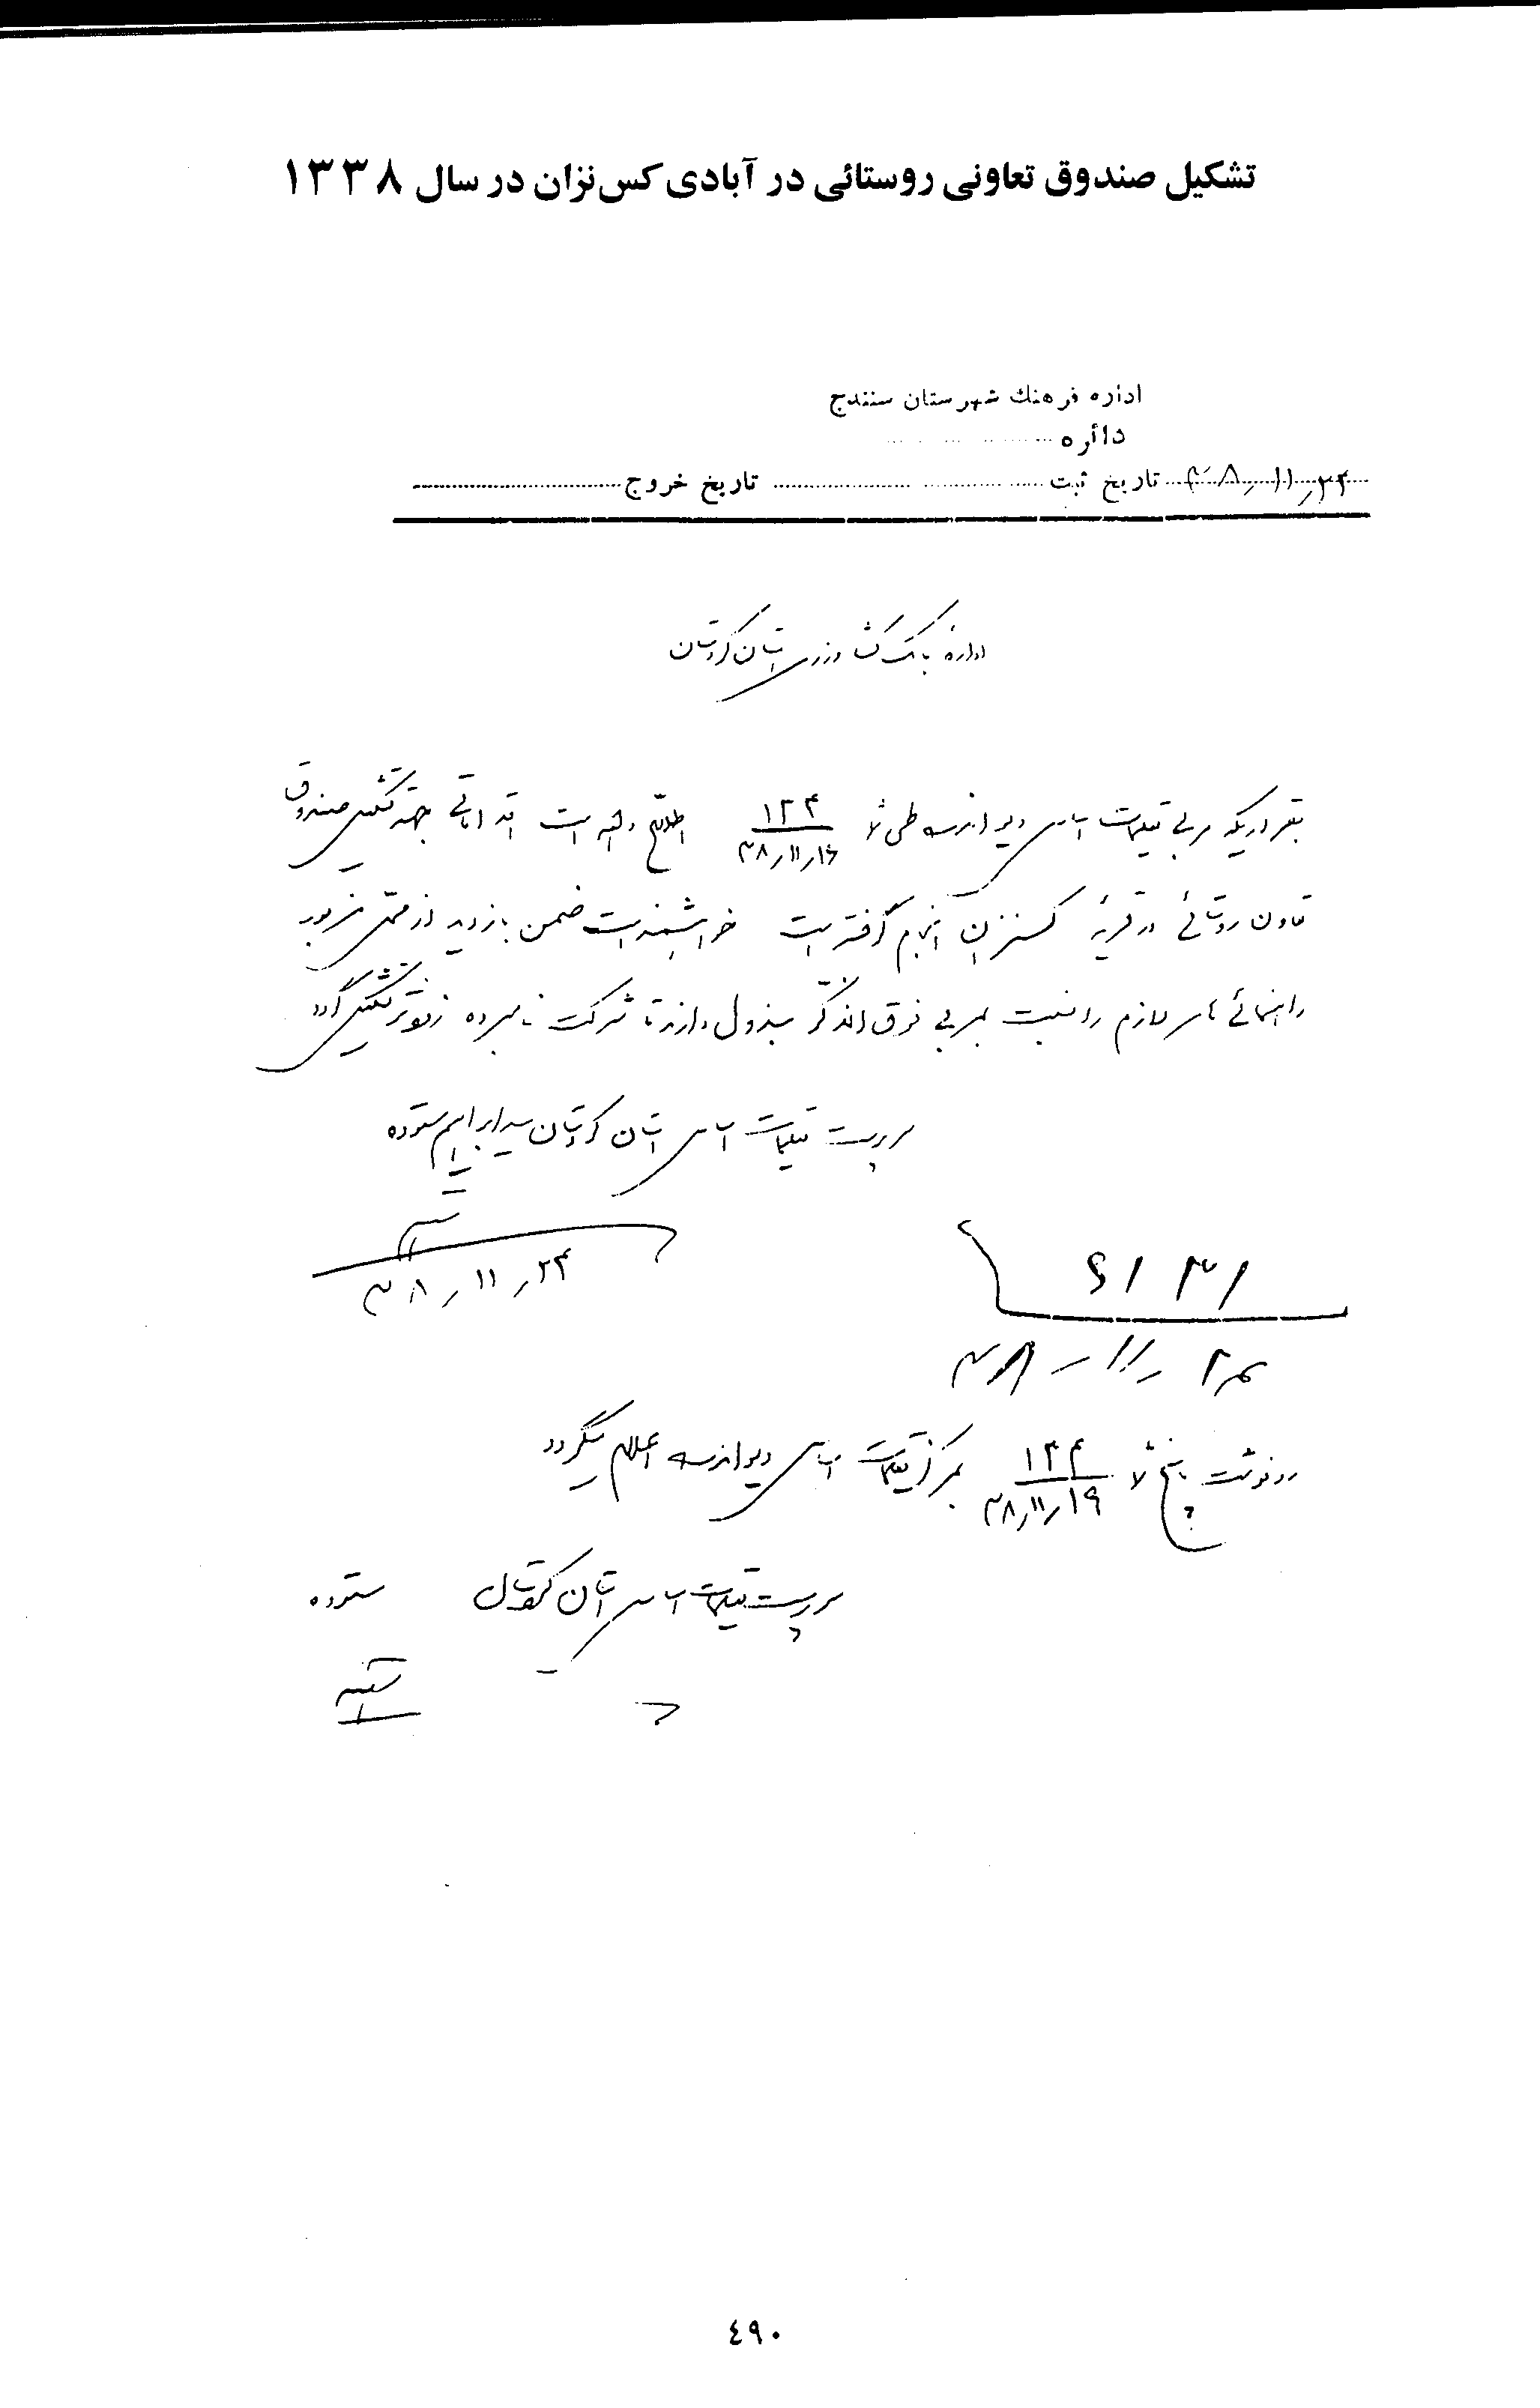 تشکیل صندوق تعاونی روستائی در آبادی کس‌نزان در سال ۱۳۳۸
اداره فرهنك شهرستان سنندج
دائره
۲۴ر۱۱ر۳۸ تاریخ ثبت تاریخ خروج
اداره بانک کشاورزی استان کردستان
بقراریکه مربی تعلیمات اساسی دیواندره طی شماره ۱۳۴ اطلاع داده است اقداماتی جهة تشکیل صندوق
۳۸ر۱۱ر۱۶
تعاون روستائی در قریه کسنزان انجام گرفته است خواهشمند است ضمن بازدید از محل مزبور
راهنمائی های لازم را نسبت بمربی فوق الذکر مبذول دارند تا شرکت نامبرده زودتر تشکیل گردد
سرپرست تعلیمات اساسی استان کردستان سید ابراهیم ستوده
۳۸ر۱۱ر۲۴
۳۸ر۱۱ر۲۴
رونوشت پاسخ شماره ۱۳۴ بمرکز تعلیمات اساسی دیواندره اعلام میگردد
۳۸ر۱۱ر۱۶
سرپرست تعلیمات اساسی استان کردستان ستوده
٤٩٠